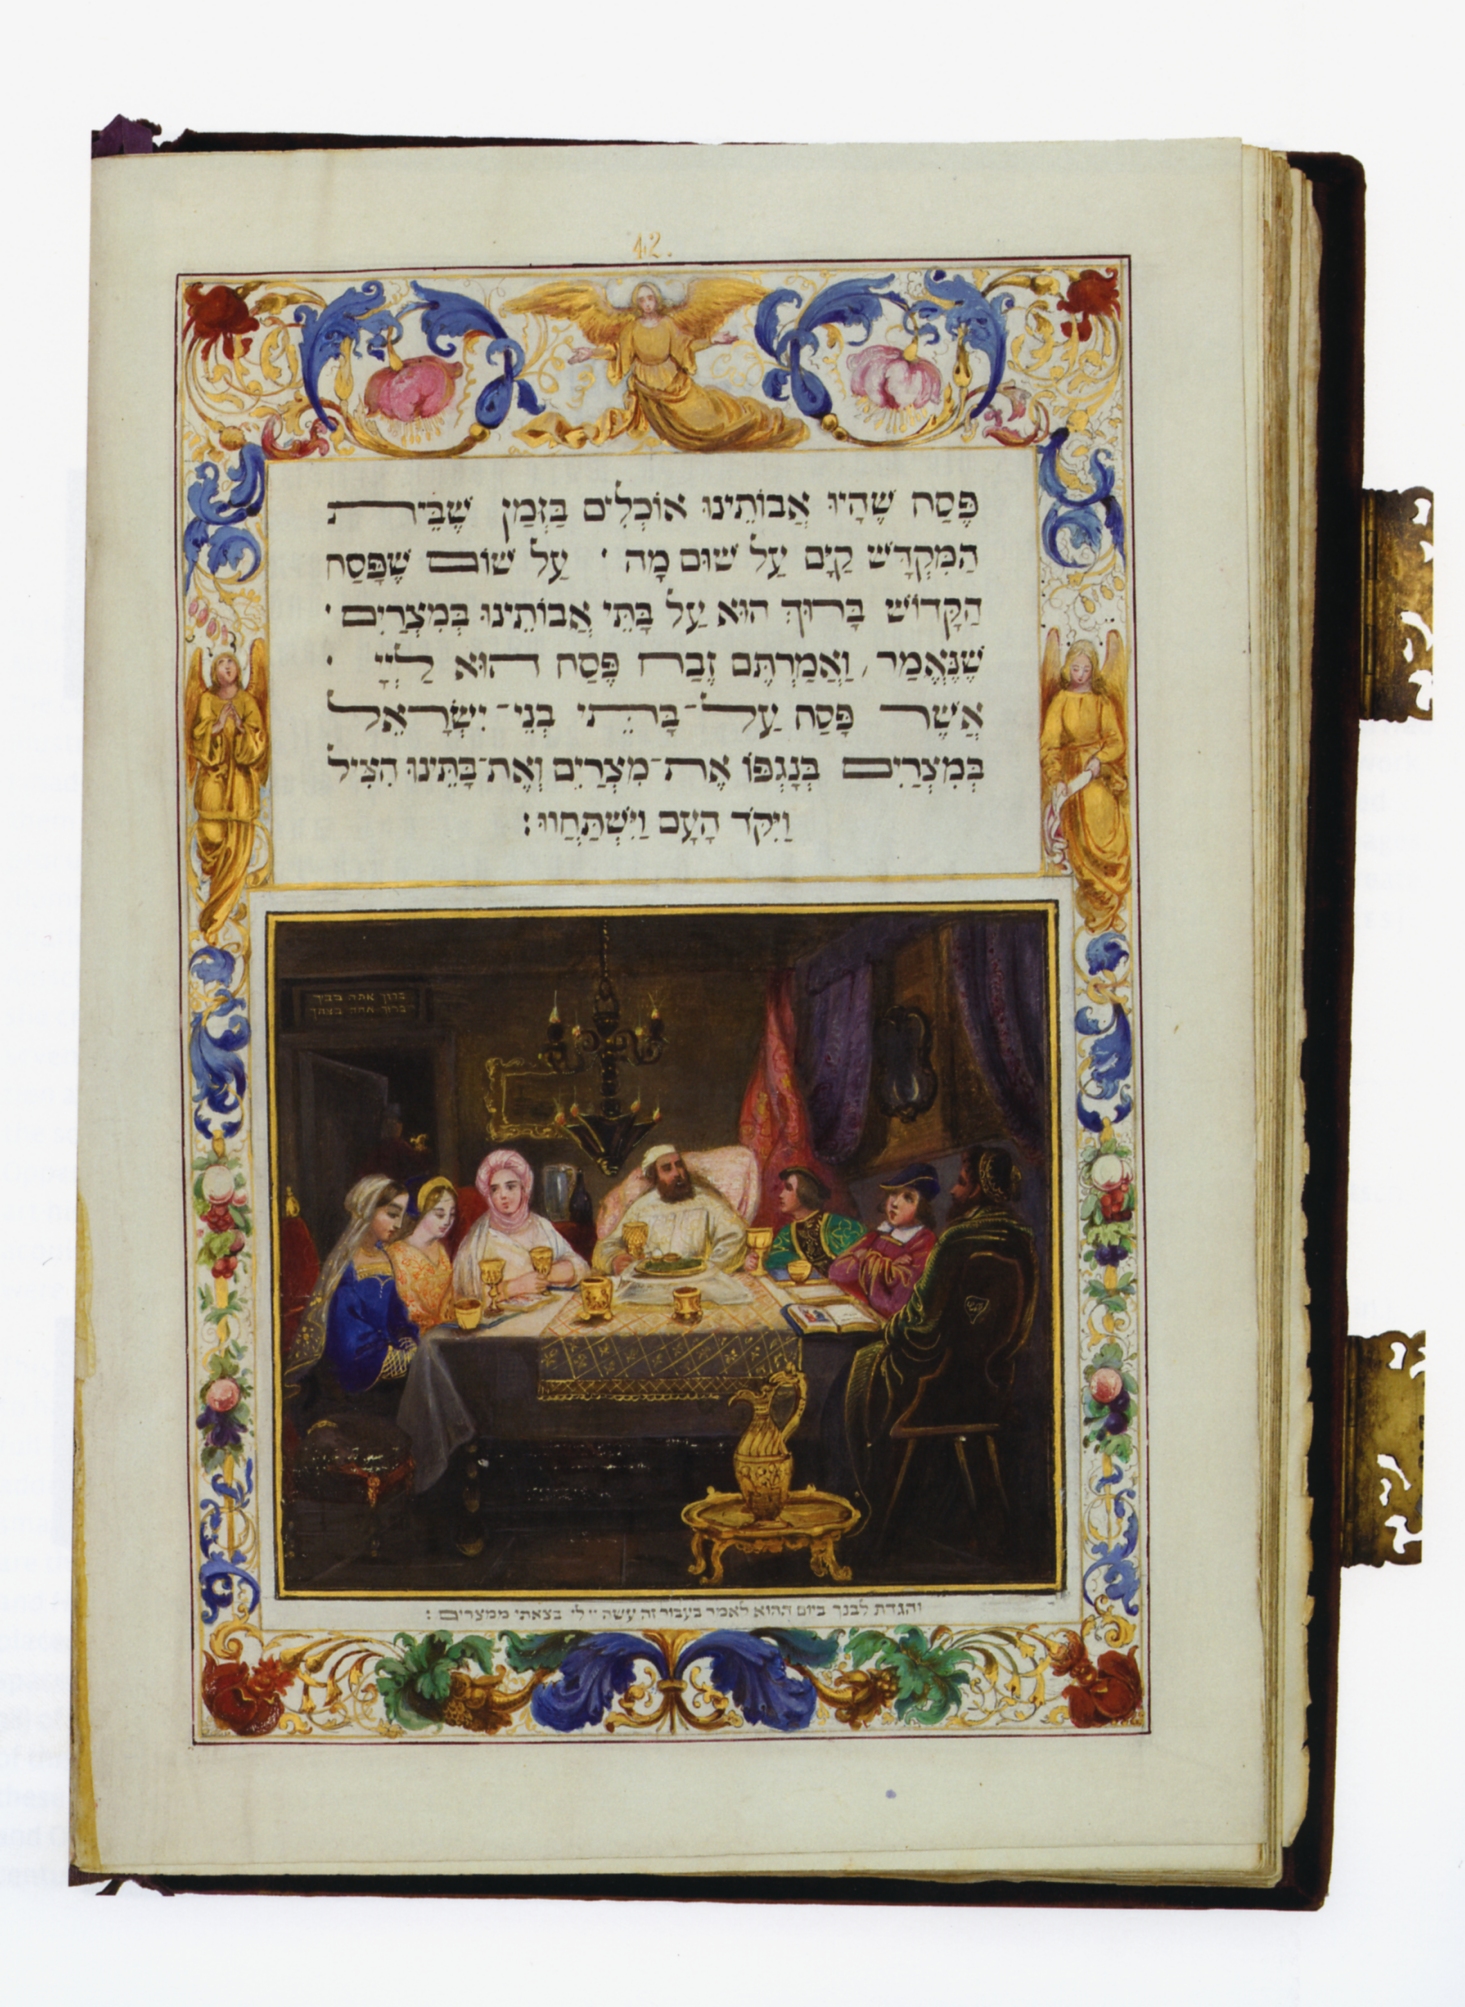 42.
פֶּסַח שֶׁהָיוּ אֲבוֹתֵינוּ אוֹכְלִים בַּזְּמַן שֶׁבֵּית
הַמִּקְדָּשׁ קַיָּם עַל שׁוּם מָה · עַל שׁוּם שֶׁפָּסַח
הַקָּדוֹשׁ בָּרוּךְ הוּא עַל בָּתֵּי אֲבוֹתֵינוּ בְּמִצְרַיִם ·
שֶׁנֶּאֱמַר, וַאֲמַרְתֶּם זֶבַח פֶּסַח הוּא לַיְיָ ·
אֲשֶׁר פָּסַח עַל־בָּתֵּי בְנֵי־יִשְׂרָאֵל
בְּמִצְרַיִם בְּנָגְפּוֹ אֶת־מִצְרַיִם וְאֶת־בָּתֵּינוּ הִצִּיל
וַיִּקֹּד הָעָם וַיִּשְׁתַּחֲווּ :
ברוך אתה בבואך
ברוך אתה בצאתך
והגדת לבנך ביום ההוא לאמר בעבור זה עשה יי לי בצאתי ממצרים :